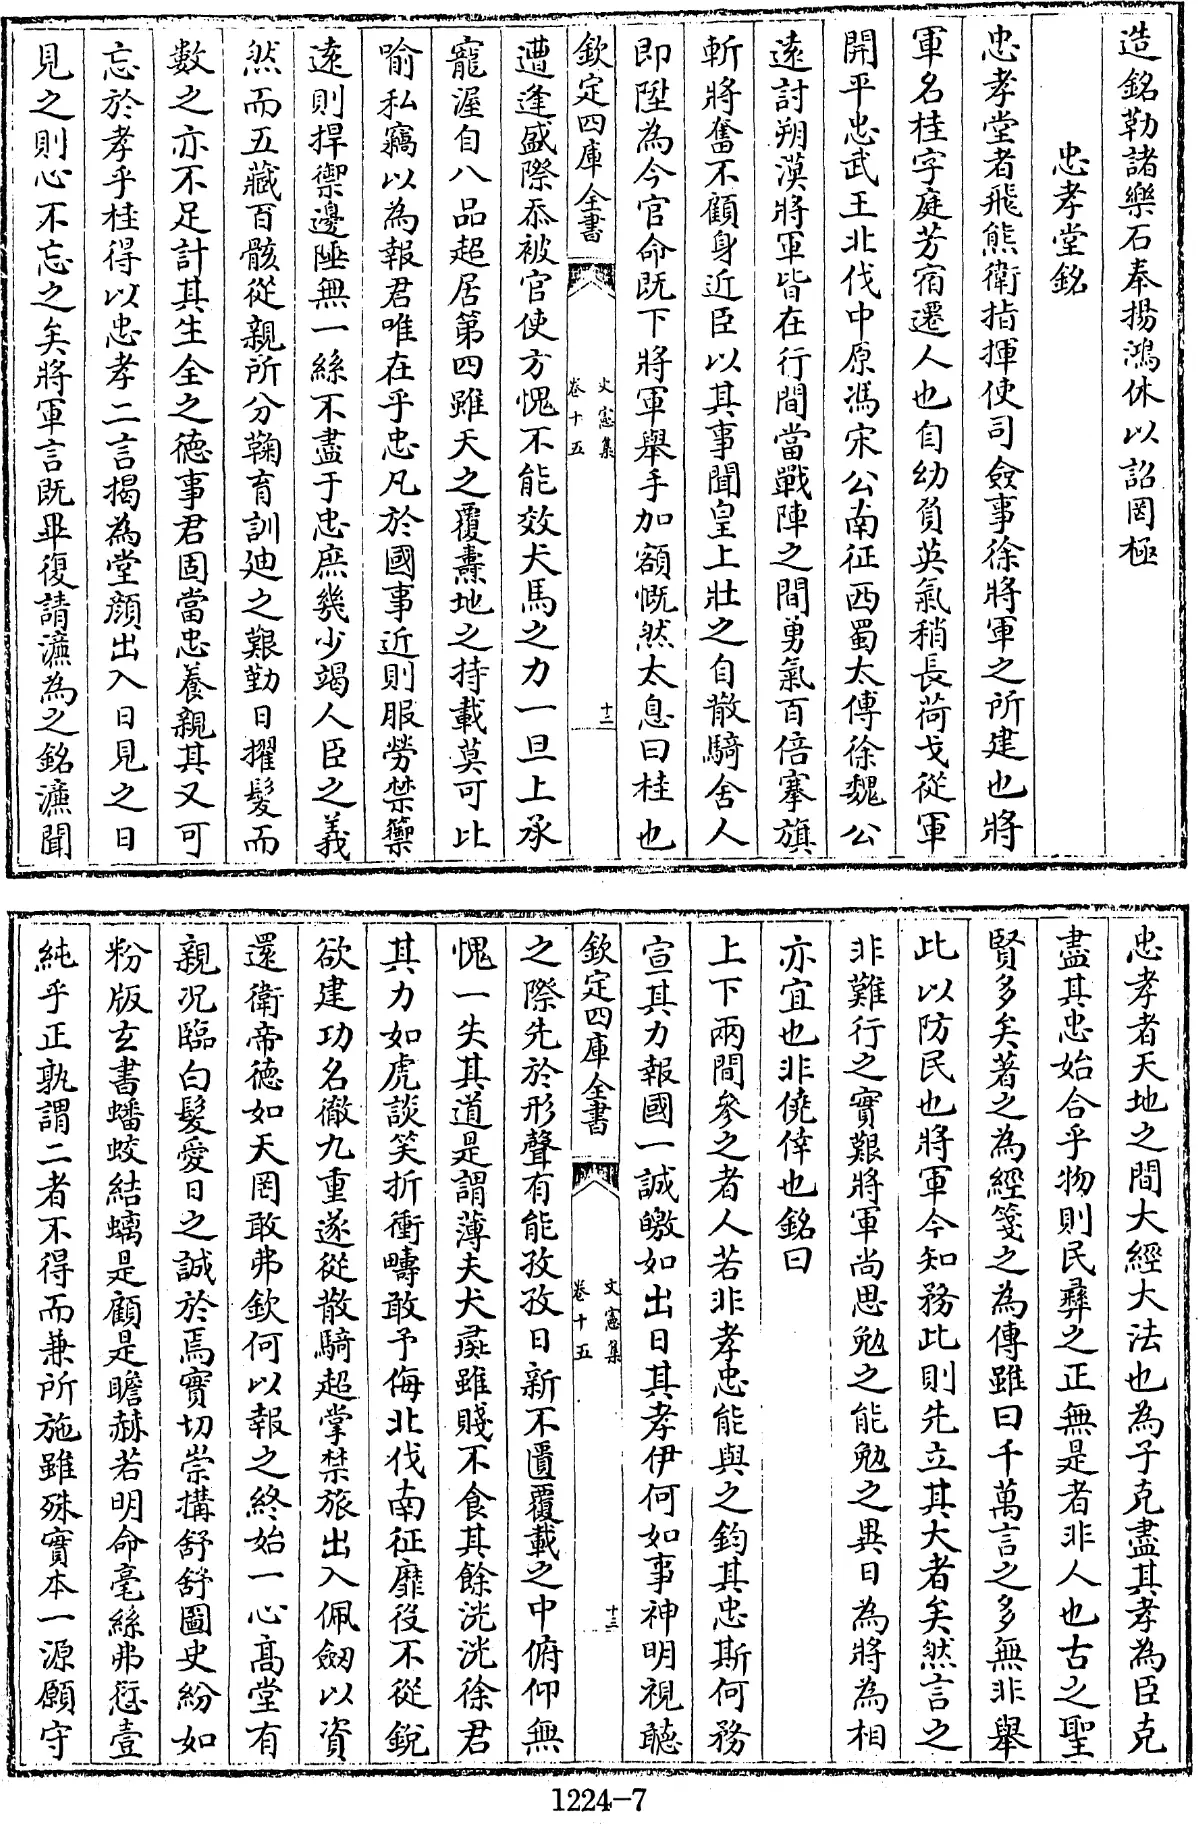 造銘勒諸樂石奉揚鴻休以詔罔極
忠孝堂銘
忠孝堂者飛熊衛指揮使司僉事徐將軍之所建也將
軍名桂字庭芳宿遷人也自幼負英氣稍長荷戈從軍
開平忠武王北伐中原馮宋公南征西蜀太傅徐魏公
遠討朔漠將軍皆在行間當戰陣之間勇氣百倍搴旗
斬將奮不顧身近臣以其事聞皇上壯之自散騎舍人
即陞為今官命既下將軍舉手加額慨然太息曰桂也
欽定四庫全書
文憲集
卷十五
十二
遭逢盛際忝被官使方愧不能效犬馬之力一旦上承
寵渥自八品超居第四雖天之覆燾地之持載莫可比
喻私竊以為報君唯在乎忠凡於國事近則服勞禁籞
遠則捍禦邊陲無一絲不盡于忠庶幾少竭人臣之義
然而五藏百骸從親所分鞠育訓廸之艱勤日擢髮而
數之亦不足計其生全之德事君固當忠養親其又可
忘於孝乎桂得以忠孝二言揭為堂顏出入日見之日
見之則心不忘之矣將軍言既畢復請濂為之銘濂聞
忠孝者天地之間大經大法也為子克盡其孝為臣克
盡其忠始合乎物則民彛之正無是者非人也古之聖
賢多矣著之為經箋之為傳雖曰千萬言之多無非舉
此以防民也將軍今知務此則先立其大者矣然言之
非難行之實艱將軍尚思勉之能勉之異日為將為相
亦宜也非僥倖也銘曰
上下兩間參之者人若非孝忠能與之鈞其忠斯何務
宣其力報國一誠皦如出日其孝伊何如事神明視聽
欽定四庫全書
文憲集
卷十五
十三
之際先於形聲有能孜孜日新不匱覆載之中俯仰無
愧一失其道是謂薄夫犬彘雖賤不食其餘洸洸徐君
其力如虎談笑折衝疇敢予侮北伐南征靡役不從銳
欲建功名徹九重遂從散騎超掌禁旅出入佩劒以資
還衛帝德如天罔敢弗欽何以報之終始一心高堂有
親况臨白髮愛日之誠於焉實切崇搆舒舒圖史紛如
粉版玄書蟠蛟結螭是顧是瞻赫若明命毫絲弗愆壹
純乎正孰謂二者不得而兼所施雖殊實本一源願守
1224-7